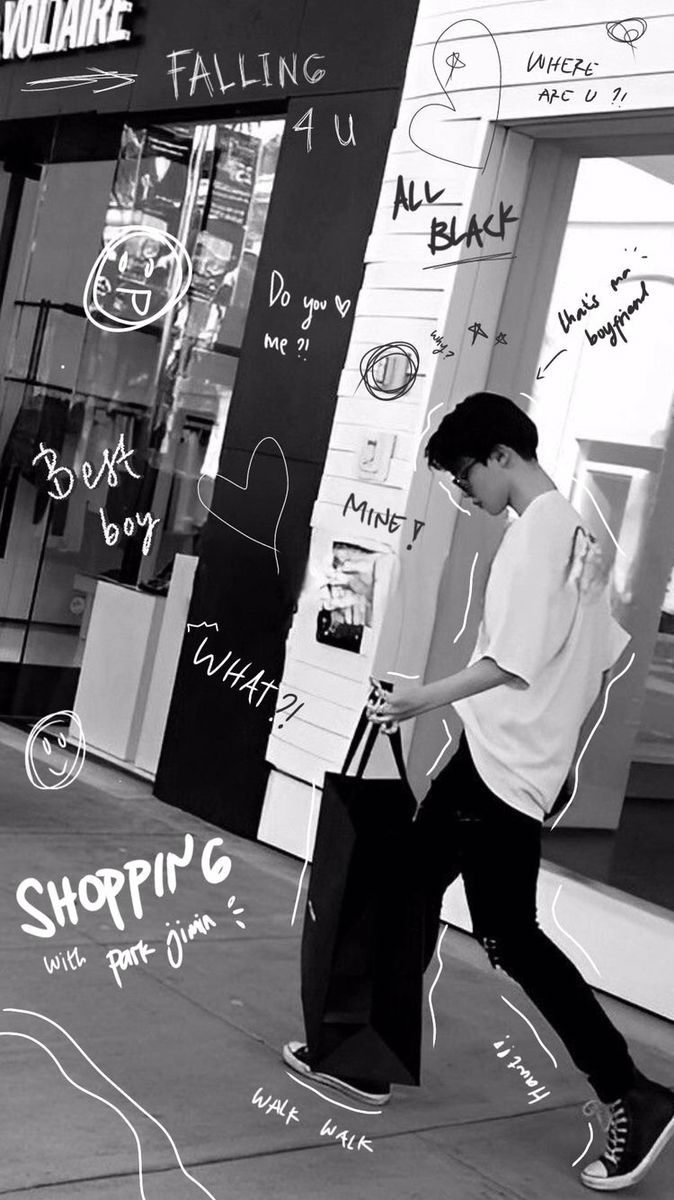 VOLTAIRE
FALLING
4 U
WHERE
ARE U ?!
ALL
BLACK
that's ma
boyfriend
Do you
me ?!
why?
Best
boy
MINE!
WHAT?!
SHOPPING
with park jimin
Hawt!!
WALK WALK